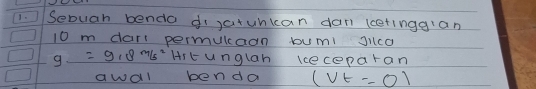 1. Sebuah benda dijatuhkan dari ketinggian
10 m dari permukaan bumi jika
g = 9,8 m/s² Hitunglah kecepatan
awal benda (Vt = 0)